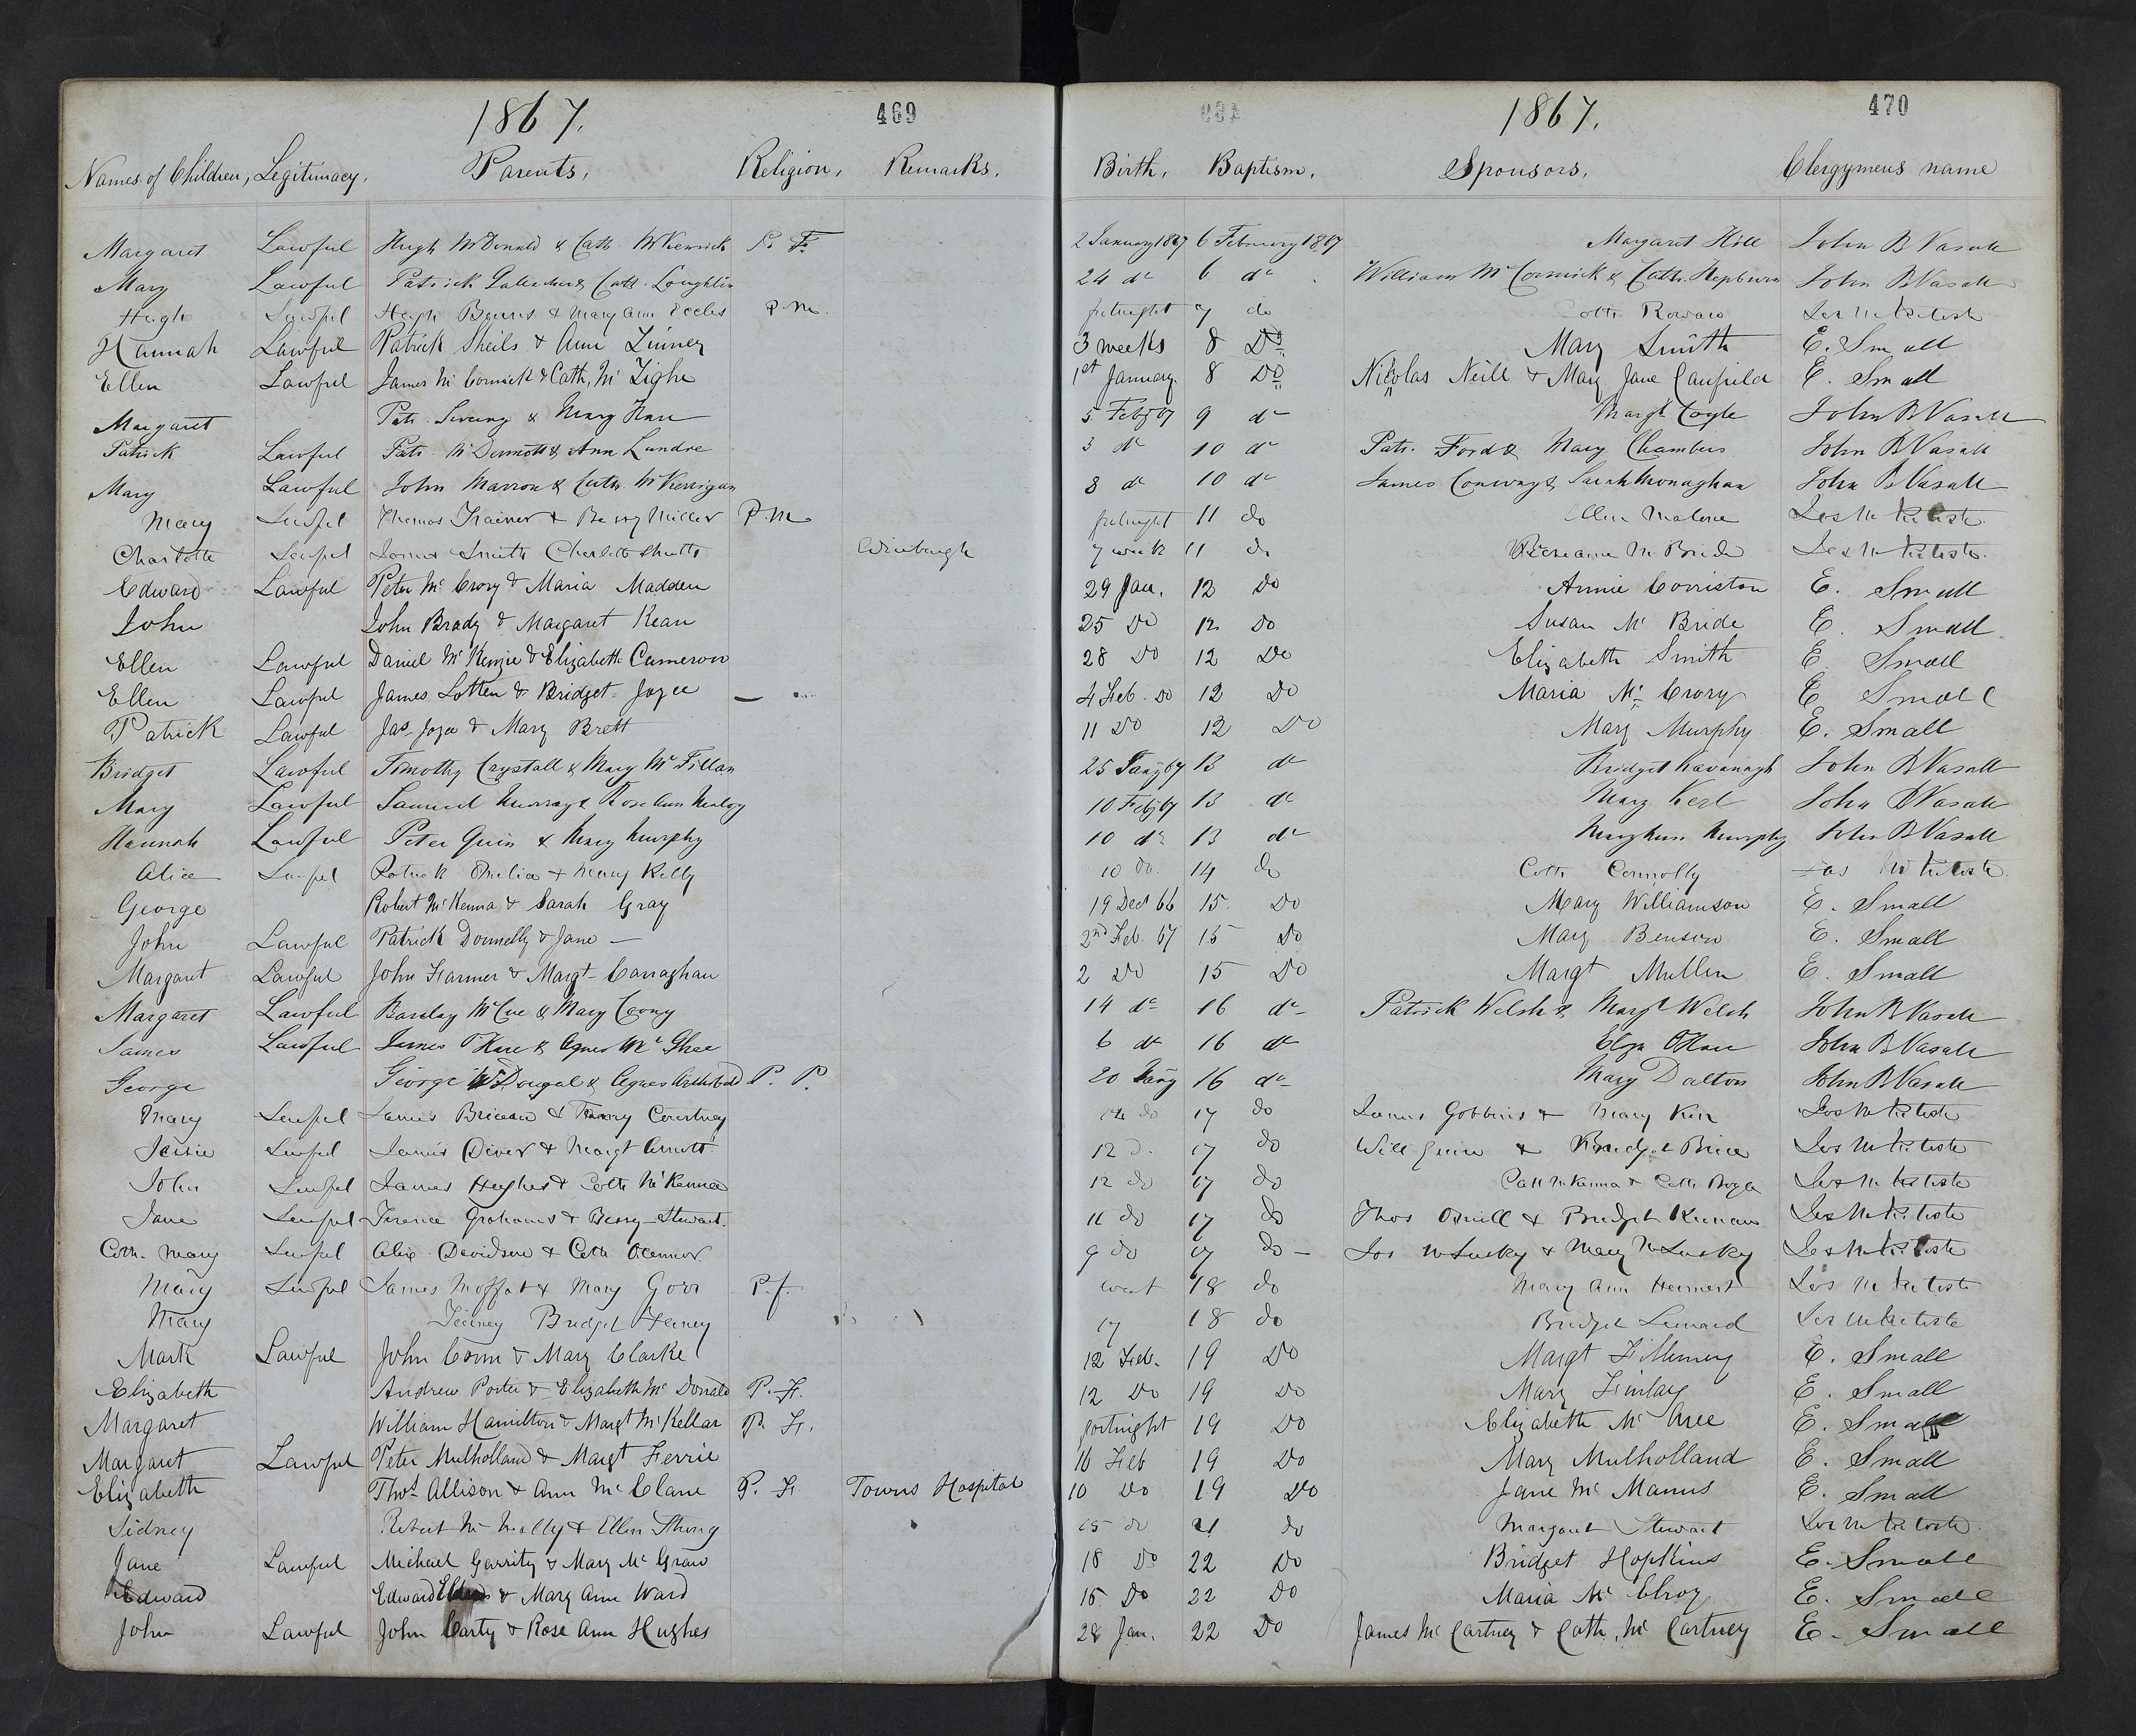 1867. 469
Names of Children, Legitimacy. Parents, Religion, Remarks.
Margaret Lawful Hugh McDonald & Cath McKenrick P. F.
Mary Lawful Patrick Gallacher & Cath. Loughlin
Hugh Lawful Hugh Burns & Mary Ann Eccles P. M.
Hannah Lawful Patrick Sheils & Ann Linney
Ellen Lawful James McCormick & Cath, McTighe
Margaret Patr. Sweeny & Mary
Patrick Lawful Patr. McDermott & Ann Lundre
Mary Lawful John Marron & Cath. McKerrigan
Mary Lawful Thomas Trainer & Bessy Miller P. M.
Charlotte Lawful James Smith Charlotte Edinburgh
Edward Lawful Peter McCrory & Maria Madden
John John Brady & Margaret Kean
Ellen Lawful Daniel McKenzie & Elizabeth Cameron
Ellen Lawful James Lotten & Bridget Joyce
Patrick Lawful Jas Joyce & Mary Brett
Bridget Lawful Timothy Crystall & Mary McFillan
Mary Lawful Samuel Murray & Rose Ann
Hannah Lawful Peter Quin & Mary Murphy
Alice Lawful Patrick & Mary Kelly
George Robert McKenna & Sarah Gray
John Lawful Patrick Donnelly & Jane —
Margaret Lawful John Farmer & Margt Carraghan
Margaret Lawful Barclay McCue & Mary
James Lawful James O'Hare & Agnes McGhee
George George McDougal & Agnes Archibald P. P.
Mary Lawful James & Courtney
Jessie Lawful James Diver & Margt
John Lawful James Hughes & Cath McKenna
Jane Lawful Terence Grahams & Bessy Stewart.
Cath. Mary Lawful Alex Davidson & Cath OConnor
Mary Lawful James Moffat & Mary Gorr P. f.
Mary Bridget
Mark Lawful John Conn & Mary Clarke
Elizabeth Andrew Porter & Elizabeth McDonald P. F.
Margaret William Hamilton & Margt McKellar P. F.
Margaret Lawful Peter Mulholland & Margt Ferrie
Elizabeth Thos Allison & Ann McClane P. F. Towns Hospital
Sidney Robert McNally & Ellen
Jane Lawful Michael Garrity & Mary McGraw
Edward Edward & Mary Ann Ward
John Lawful John Carty & Rose Ann Hughes
1867. 470
Birth, Baptism, Sponsors, Clergymens name
2 January 1867 6 February 1867 Margaret Hill John B Vasall
24 do 6 do William McCormick & Cath. Hepburn John B Vasall
fortnight 7 do Cath
3 weeks 8 Do Mary Smith E. Small
1st January. 8 Do Nicolas Neill & Mary Jane Caufield E. Small
5 Feby 67 9 do Margt Coyle John B Vasall
3 do 10 do Patr. Ford & Mary Chambers John B Vasall
8 do 10 do James Conway & Sarah Monaghan John B Vasall
fortnight 11 do Ellen Malone
7 week 11 do McBride
29 Jan. 12 Do Annie Corriston E. Small
25 Do 12 Do Susan McBride E. Small
28 Do 12 Do Elizabeth Smith E Small
4 Feb. Do 12 Do Maria McCrory E Small
11 Do 12 Do Mary Murphy E. Small
25 Jany 67 13 do Bridget Kavanagh John B Vasall
10 Feby 67 13 do Mary John B Vasall
10 do 13 do Mary Ann Murphy John B Vasall
10 do. 14 do Cath Connolly
19 Dec 66 15 Do Mary Williamson E. Small
2nd Feb. 67 15 Do Mary Benson E. Small
2 Do 15 Do Margt Mullen E. Small
14 do 16 do Patrick Welsh & Margt Welsh John B Vasall
6 do 16 do Eliza OHare John B Vasall
20 Jany 16 do Mary Dalton John B Vasall
14 do 17 do James Gobbins & Mary Kerr
12 do 17 do Will Quin & Bridget
12 do 17 do McKenna & Cath Boyle
11 do 17 do Thos Oneill & Bridget Keenan
9 do 17 do — Jos McLusky & Mary McLusky
week 18 do Mary Ann
17 18 do Bridget Leonard
12 Feb. 19 Do Margt E. Small
12 Do 19 Do Mary Finlay E. Small
fortnight 19 Do Elizabeth McAree E. Small
16 Feb 19 Do Mary Mulholland E. Small
10 Do 19 Do Jane McManus E. Small
15 do 21 do Margaret Stewart
18 Do 22 Do Bridget Hopkins E. Small
15 Do 22 Do Maria McElroy E. Small
28 Jan. 22 Do James McCartney & Cath. McCartney E. Small